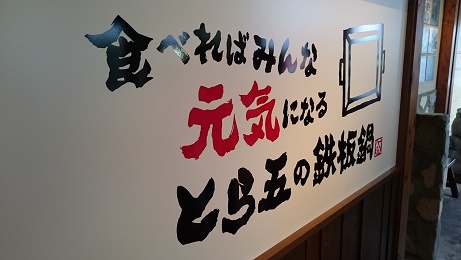 食べればみんな
元気になる
とら五の鉄板鍋